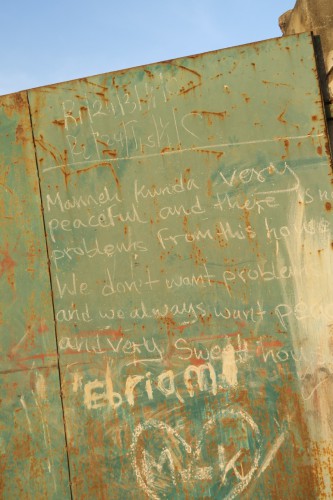 Manneh kunda very
peaceful and there is n
problems from this house
We don't want problem
and we always want pea
and very sweet hous
Ebriam
M L K